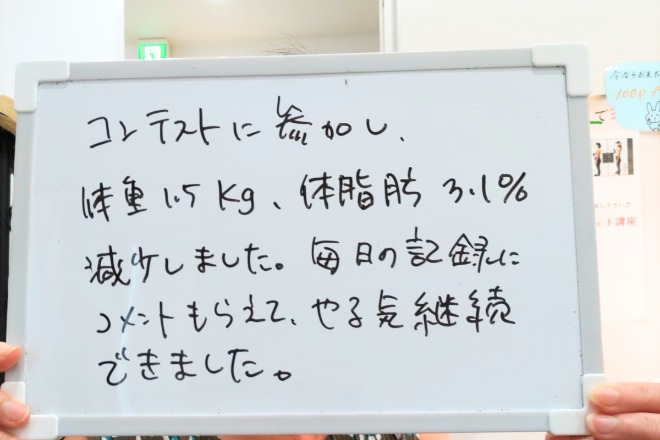 コンテストに参加し、
体重1.5kg、体脂肪3.1%
減少しました。毎日の記録に
コメントもらえて、やる気継続
できました。
今なら
100P
ット講座